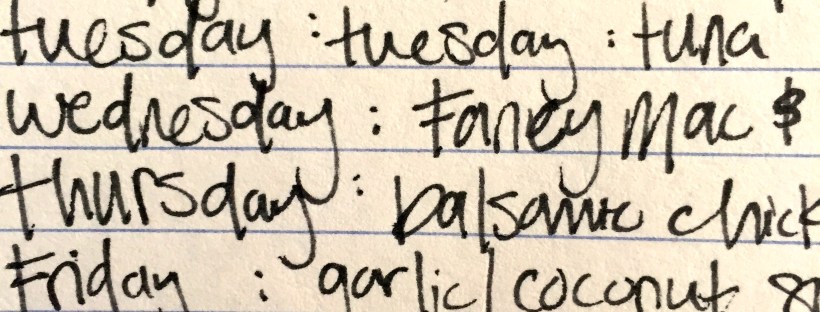 tuesday : tuesday : tuna
wednesday : Fancy Mac &
thursday : balsamic chick
Friday : garlic/coconut